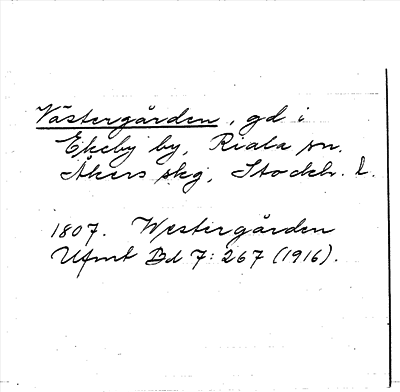 Västergården, gd i
Ekeby by, Riala sn.
Åkers skg, Stockh. l.
1807. Westergården
Ufmt Bd 7: 267 (1916).